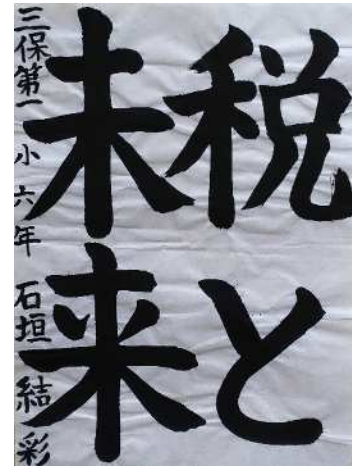 税と
未来
三保第一小六年 石垣結彩